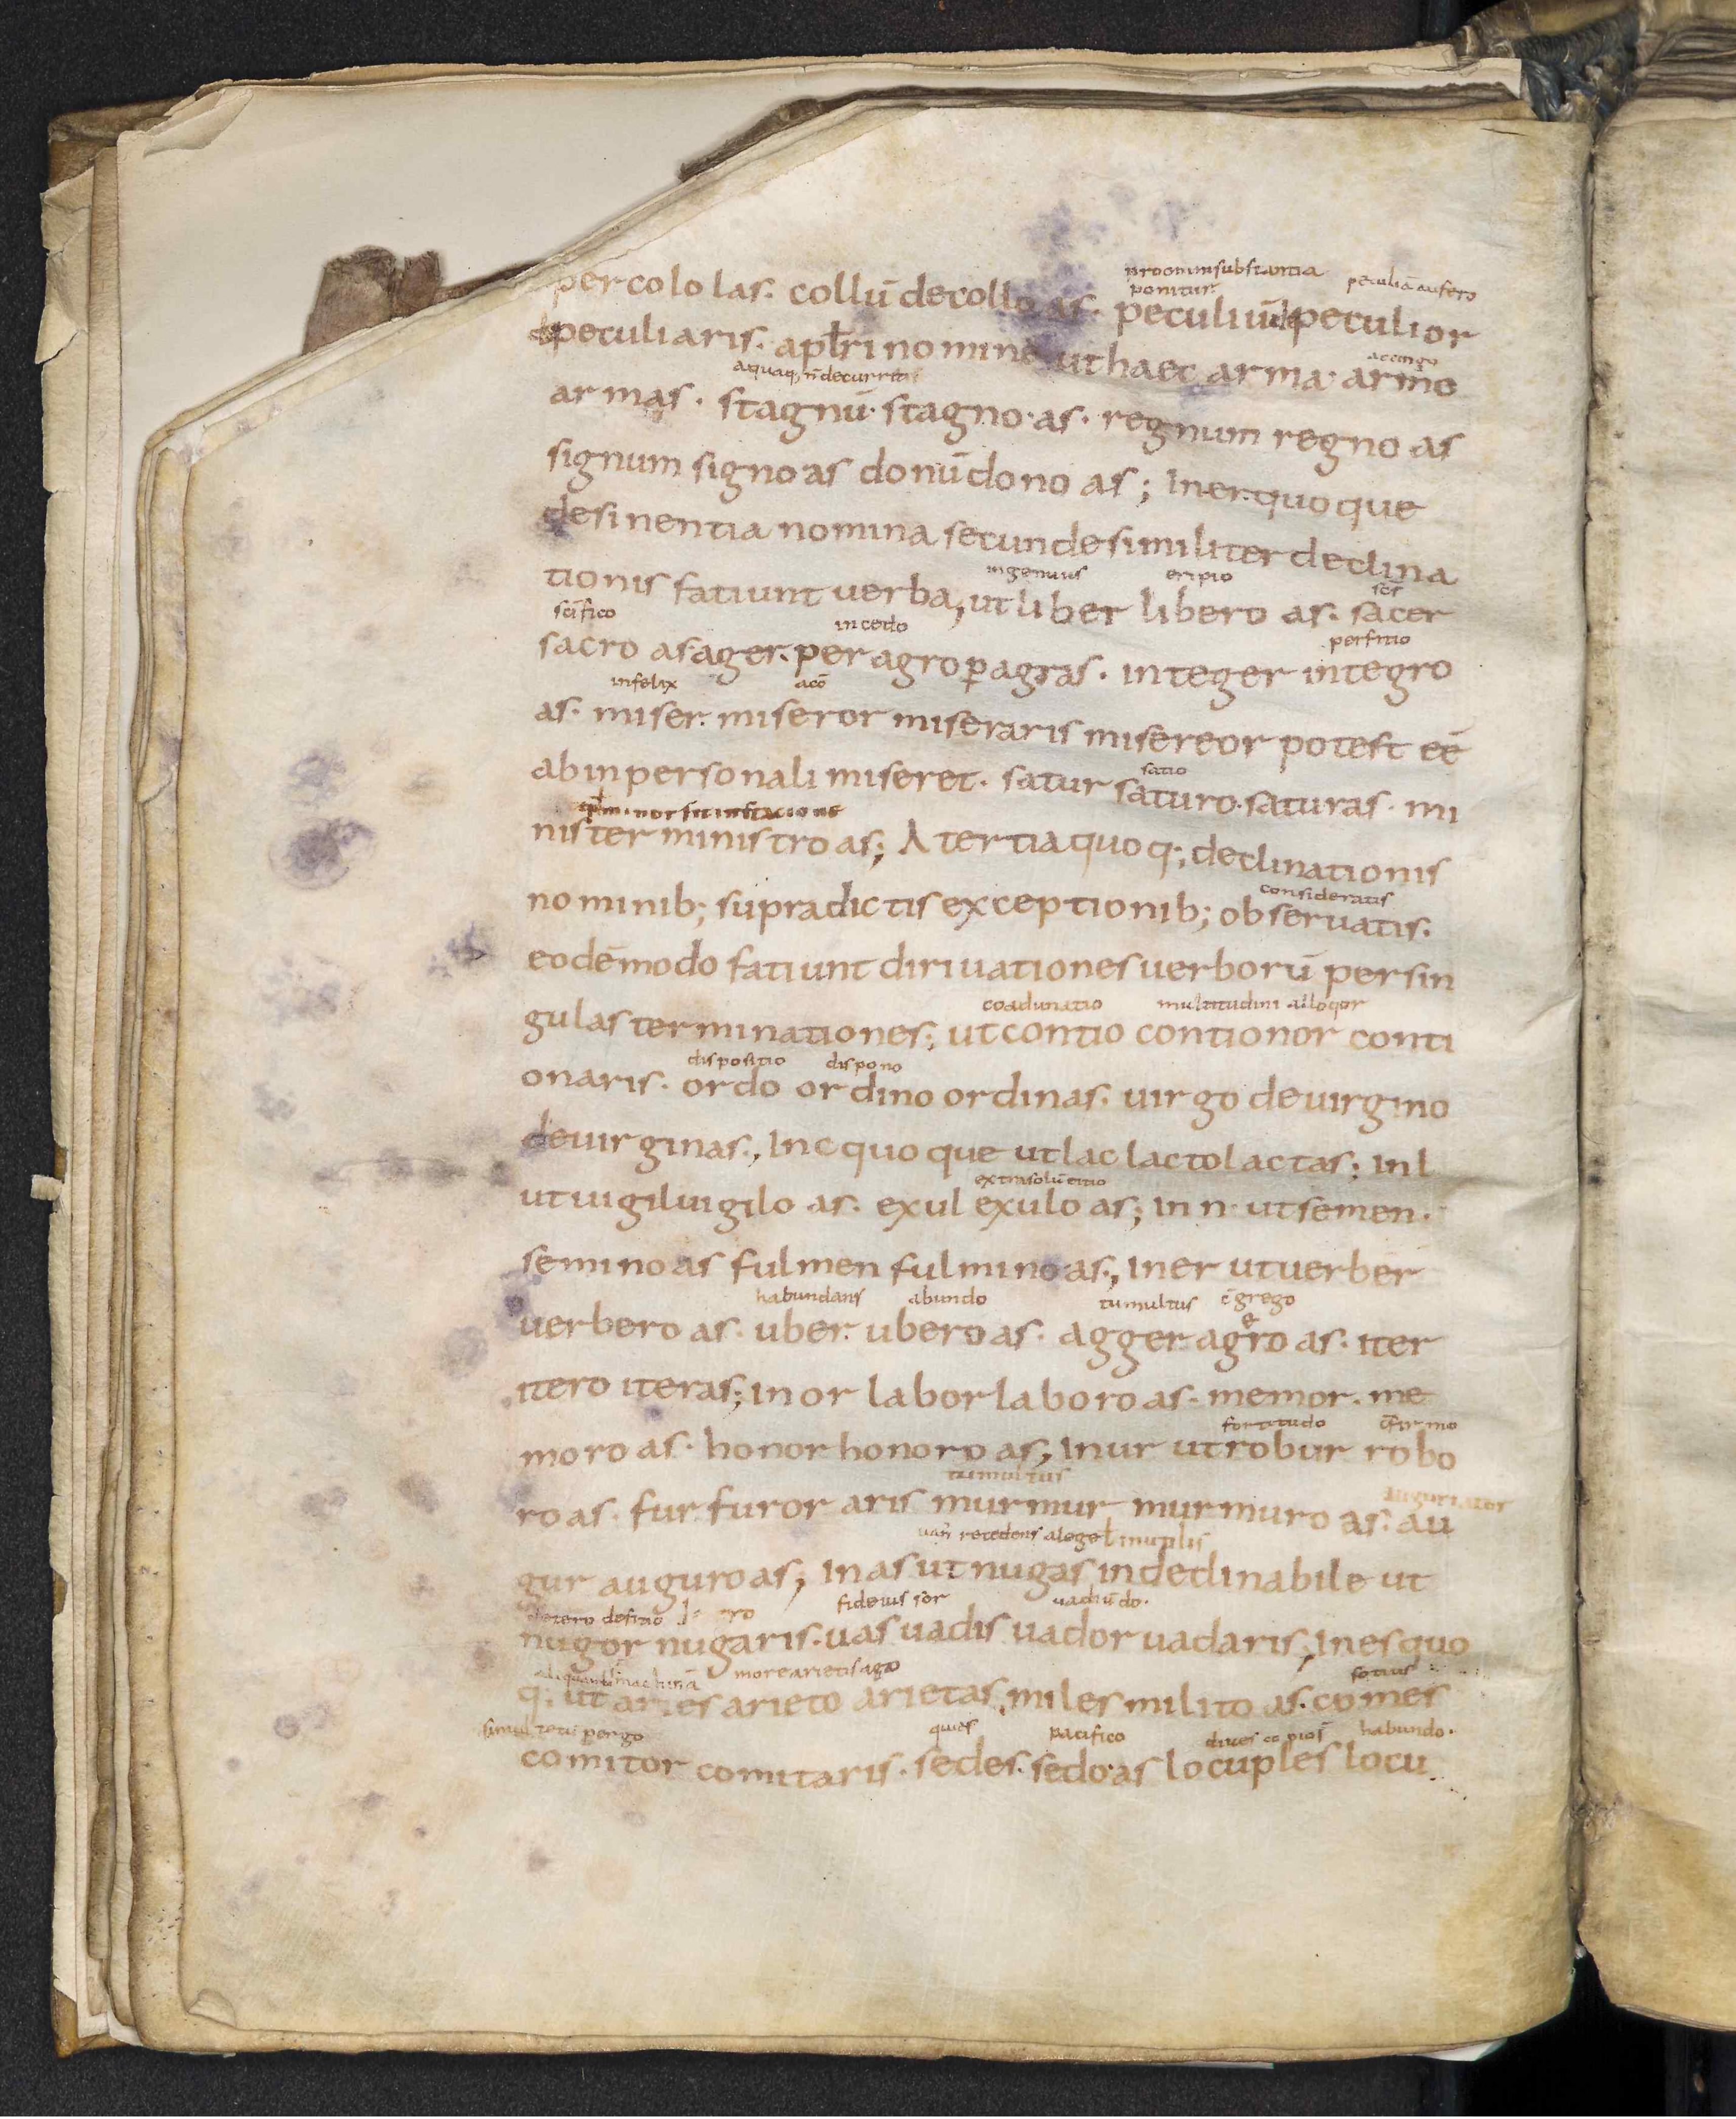 pro omni substantia peculiā aufero
ponitur
percolo las. collū decollo as. peculiū depeculior
depeculiaris. a pl̄uri nomine ut haec arma. armo
accingo
aqua q; ñ decurrit
armas. stagnū. stagno. as. regnum regno as
signum signo as donū dono as; In er. quoque
desinentia nomina secunde similiter declina
ingenuus eripio sc̄s
tionis fatiunt uerba, ut liber libero as. sacer
sc̄ifico incedo perfitio
sacro as ager. peragro ꝑagras. integer integro
infelix
as. miser. miseror miseraris misereor potest eē
satio
ab inpersonali miseret. satur saturo. saturas. mi
minor sit in statione
nister ministro as; A tertia quoq; declinationis
consideratis
nominib; supradictis exceptionib; obseruatis.
eodē modo fatiunt diriuationes uerborū per sin
coadunatio multitudini alloqor
gulas terminationes; ut contio contionor conti
dispositio dispono
onaris. ordo ordino ordinas. uirgo deuirgino
deuirginas., In c quoque ut lac lacto lactas; In l
extra solū
ut uigil uigilo as. exul exulo as; In n. ut semen.
semino as fulmen fulmino as., In er ut uerber
habundans abundo tumultus c̄grego
uerbero as. uber. ubero as. agger aggero as. iter
itero iteras; in or labor laboro as. memor. me
fortitudo c̄firmo
moro as. honor honoro as, In ur ut robur robo
tumultus auguriator
ro as. fur furor aris murmur murmuro as. au
recedens a lege ł inutilis
gur auguro as; In as ut nugas indeclinabile ut
fideius sor uadiū do.
nugor nugaris. uas uadis uador uadaris; In es quo
more arietis ago sotius
q; ut aries arieto arietas, miles milito as. comes
simul pergo quies pacifico diues copios habundo.
comitor comitaris. sedes. sedo as locuples locu